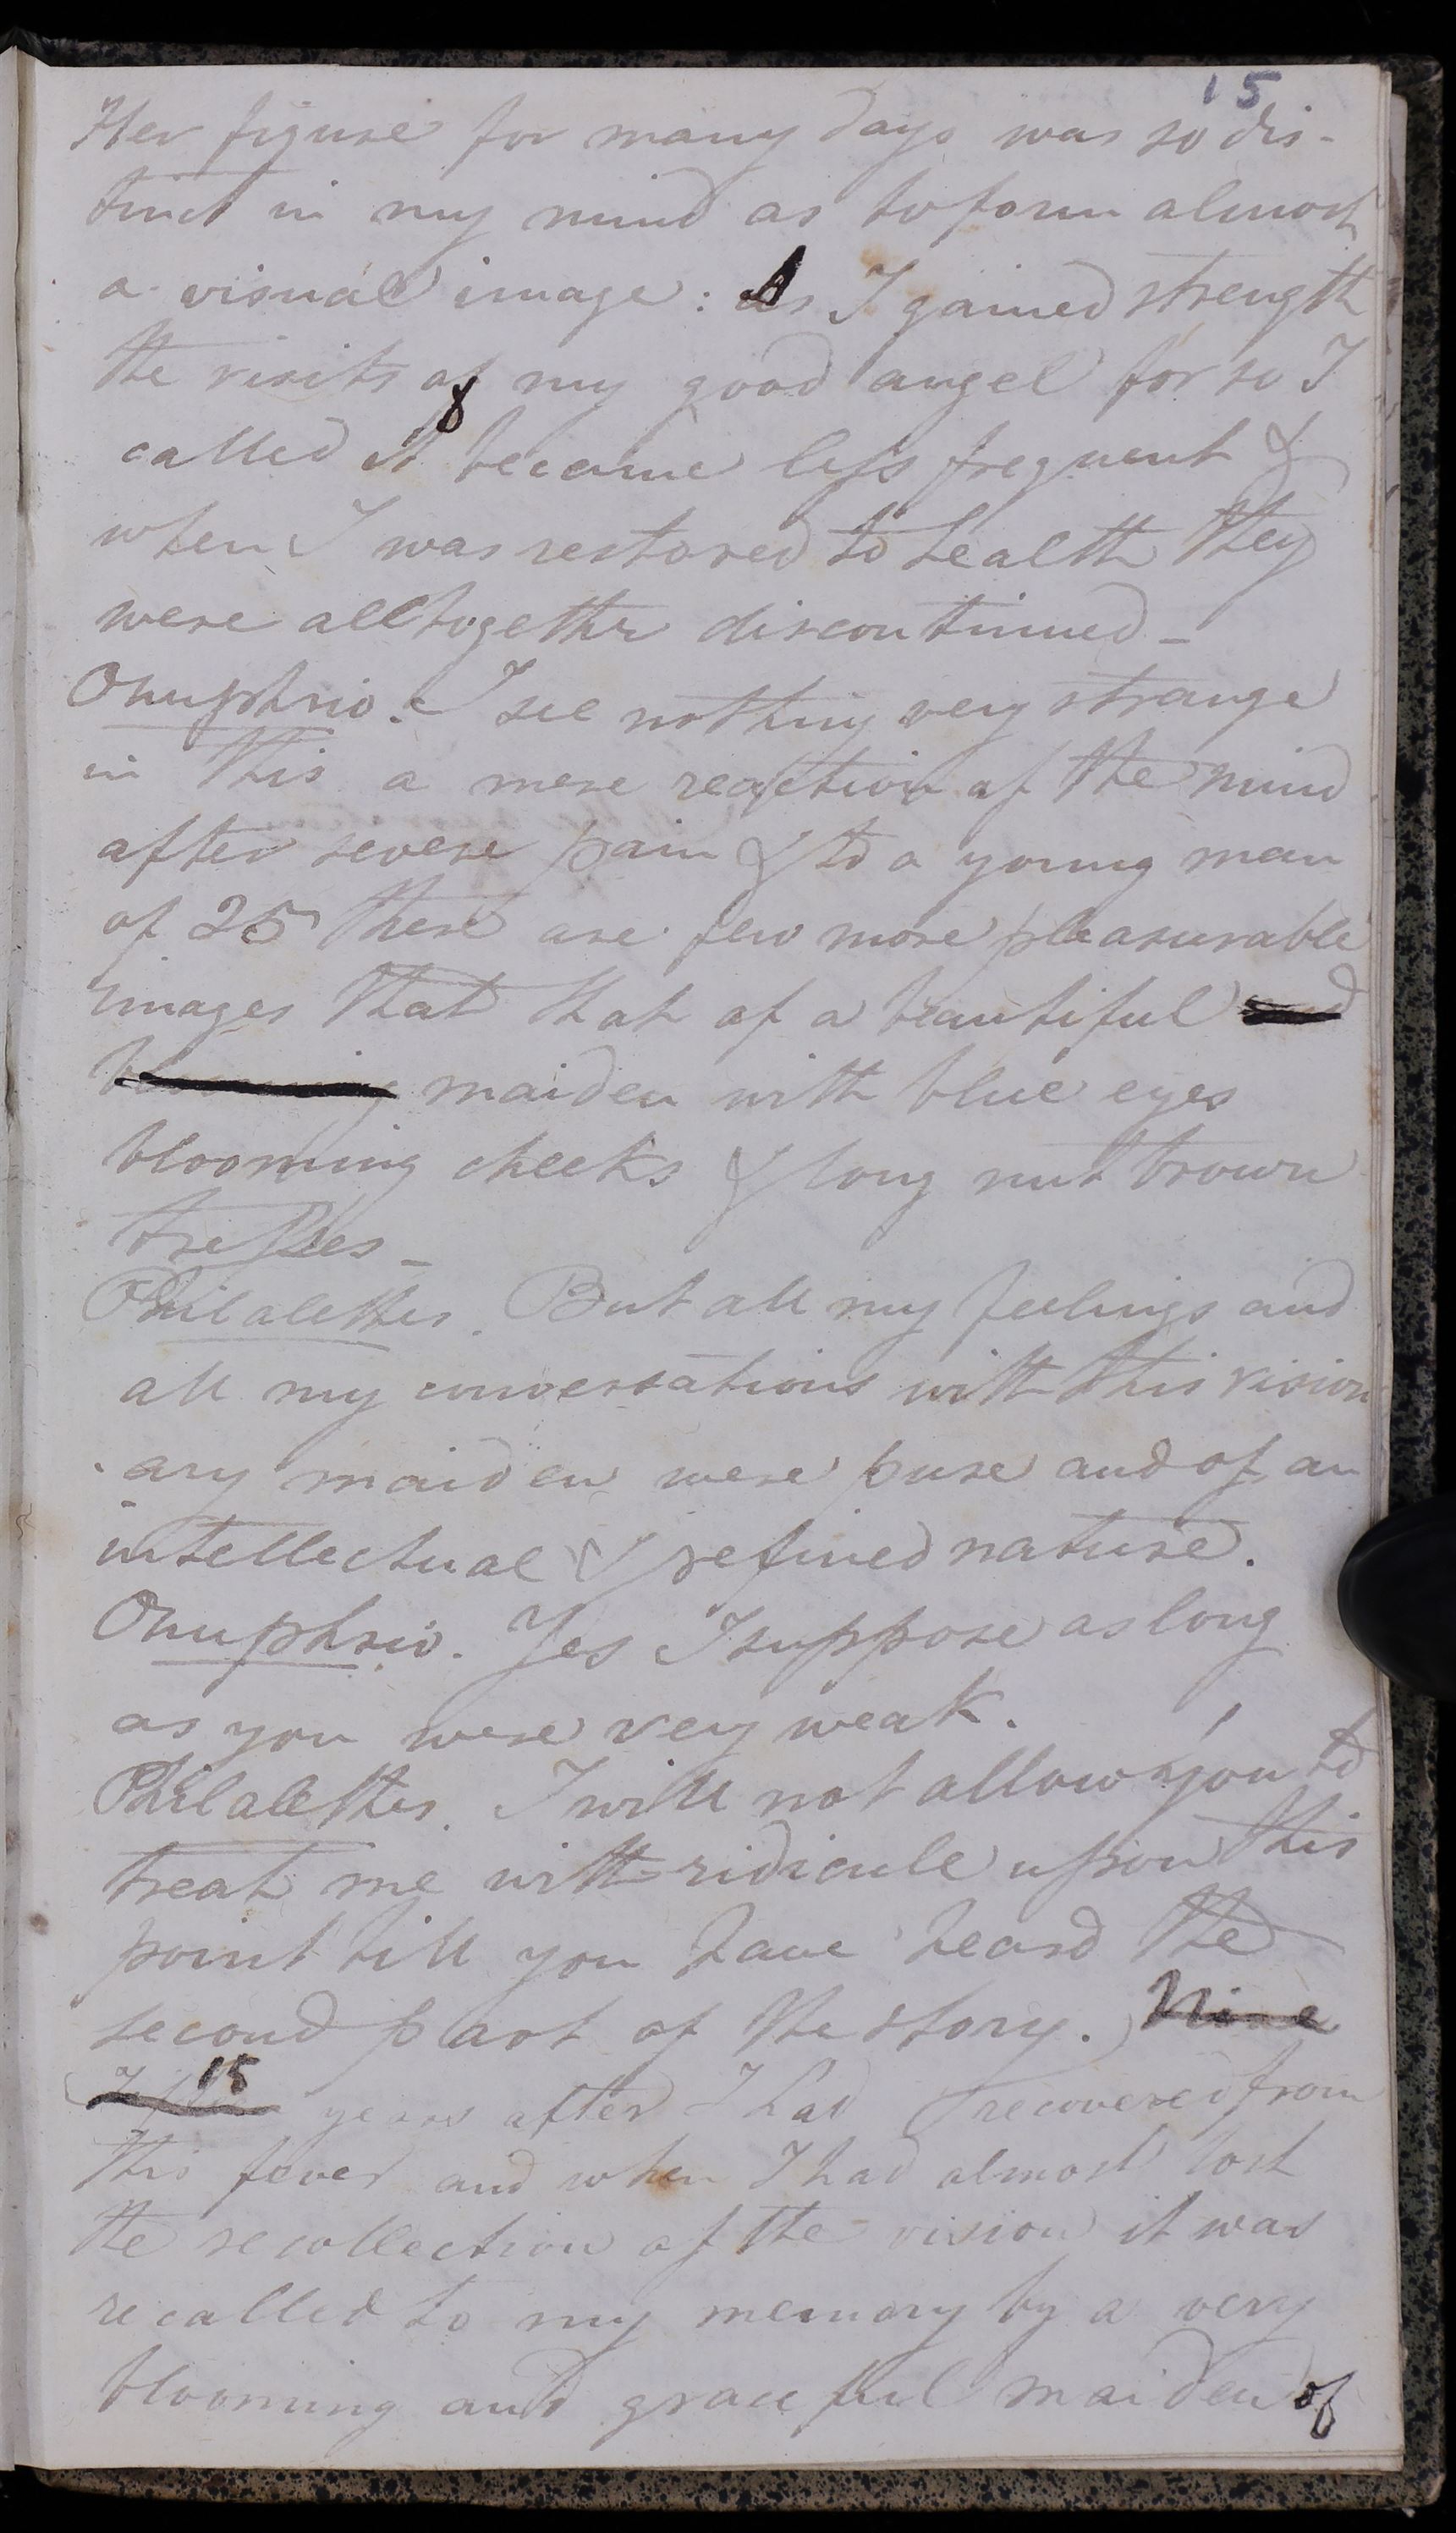 15
Her figure for many days was so dis-
tinct in my mind as to form almost
a visual image: As I gained strength
the visits of my good angel for so I
called it became less frequent &
when I was restored to health they
were alltogether discontinued_
Onuphrio. I see nothing very strange
in this a mere reaction of the mind
after severe pain & to a young man
of 25 there are few more pleasurable
images that that of a beautiful and
blooming maiden with blue eyes
blooming cheeks & long nut brown
tresses_
Philalethes. But all my feelings and
all my conversations with this vision
-ary maiden were pure and of an
intellectual & refined nature.
Onuphrio. Yes I suppose as long
as you were very weak.
Philalethes. I will not allow you to
treat me with ridicule upon this
point till you have heard the
second part of the story. Nine
15
years after I had recovered from
this fever and when I had almost lost
the recollection of the vision it was
recalled to my memory by a very
blooming and graceful maiden of